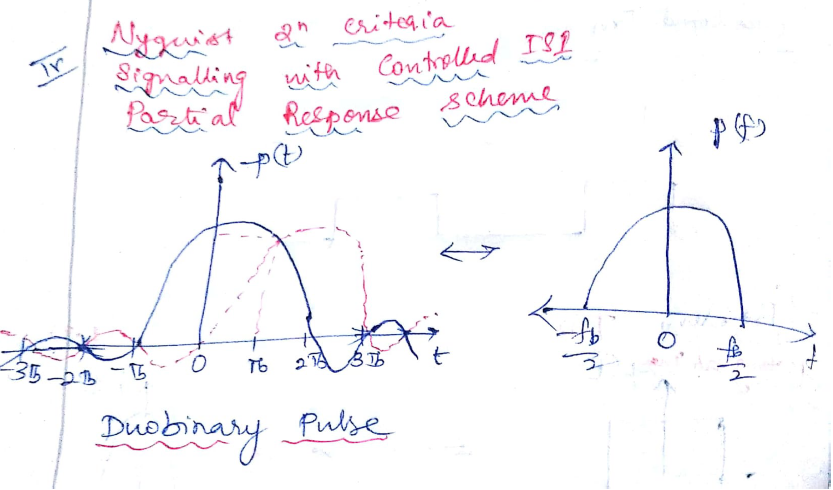 IV
Nyquist 2n criteria
Signalling with Controlled ISI
Partial Response scheme
p(t)
p(f)
-3Tb -2Tb -Tb 0 Tb 2Tb 3Tb t
-fb/2 0 fb/2 f
Duobinary Pulse